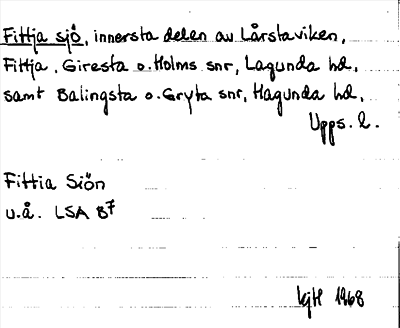 Fittja sjö, innersta delen av Lårstaviken,
Fittja, Giresta o. Holms snr, Lagunda hd,
samt Balingsta o. Gryta snr, Hagunda hd,
Upps. l.
Fittia Siön
u.å. LSA B7
kjH 1968